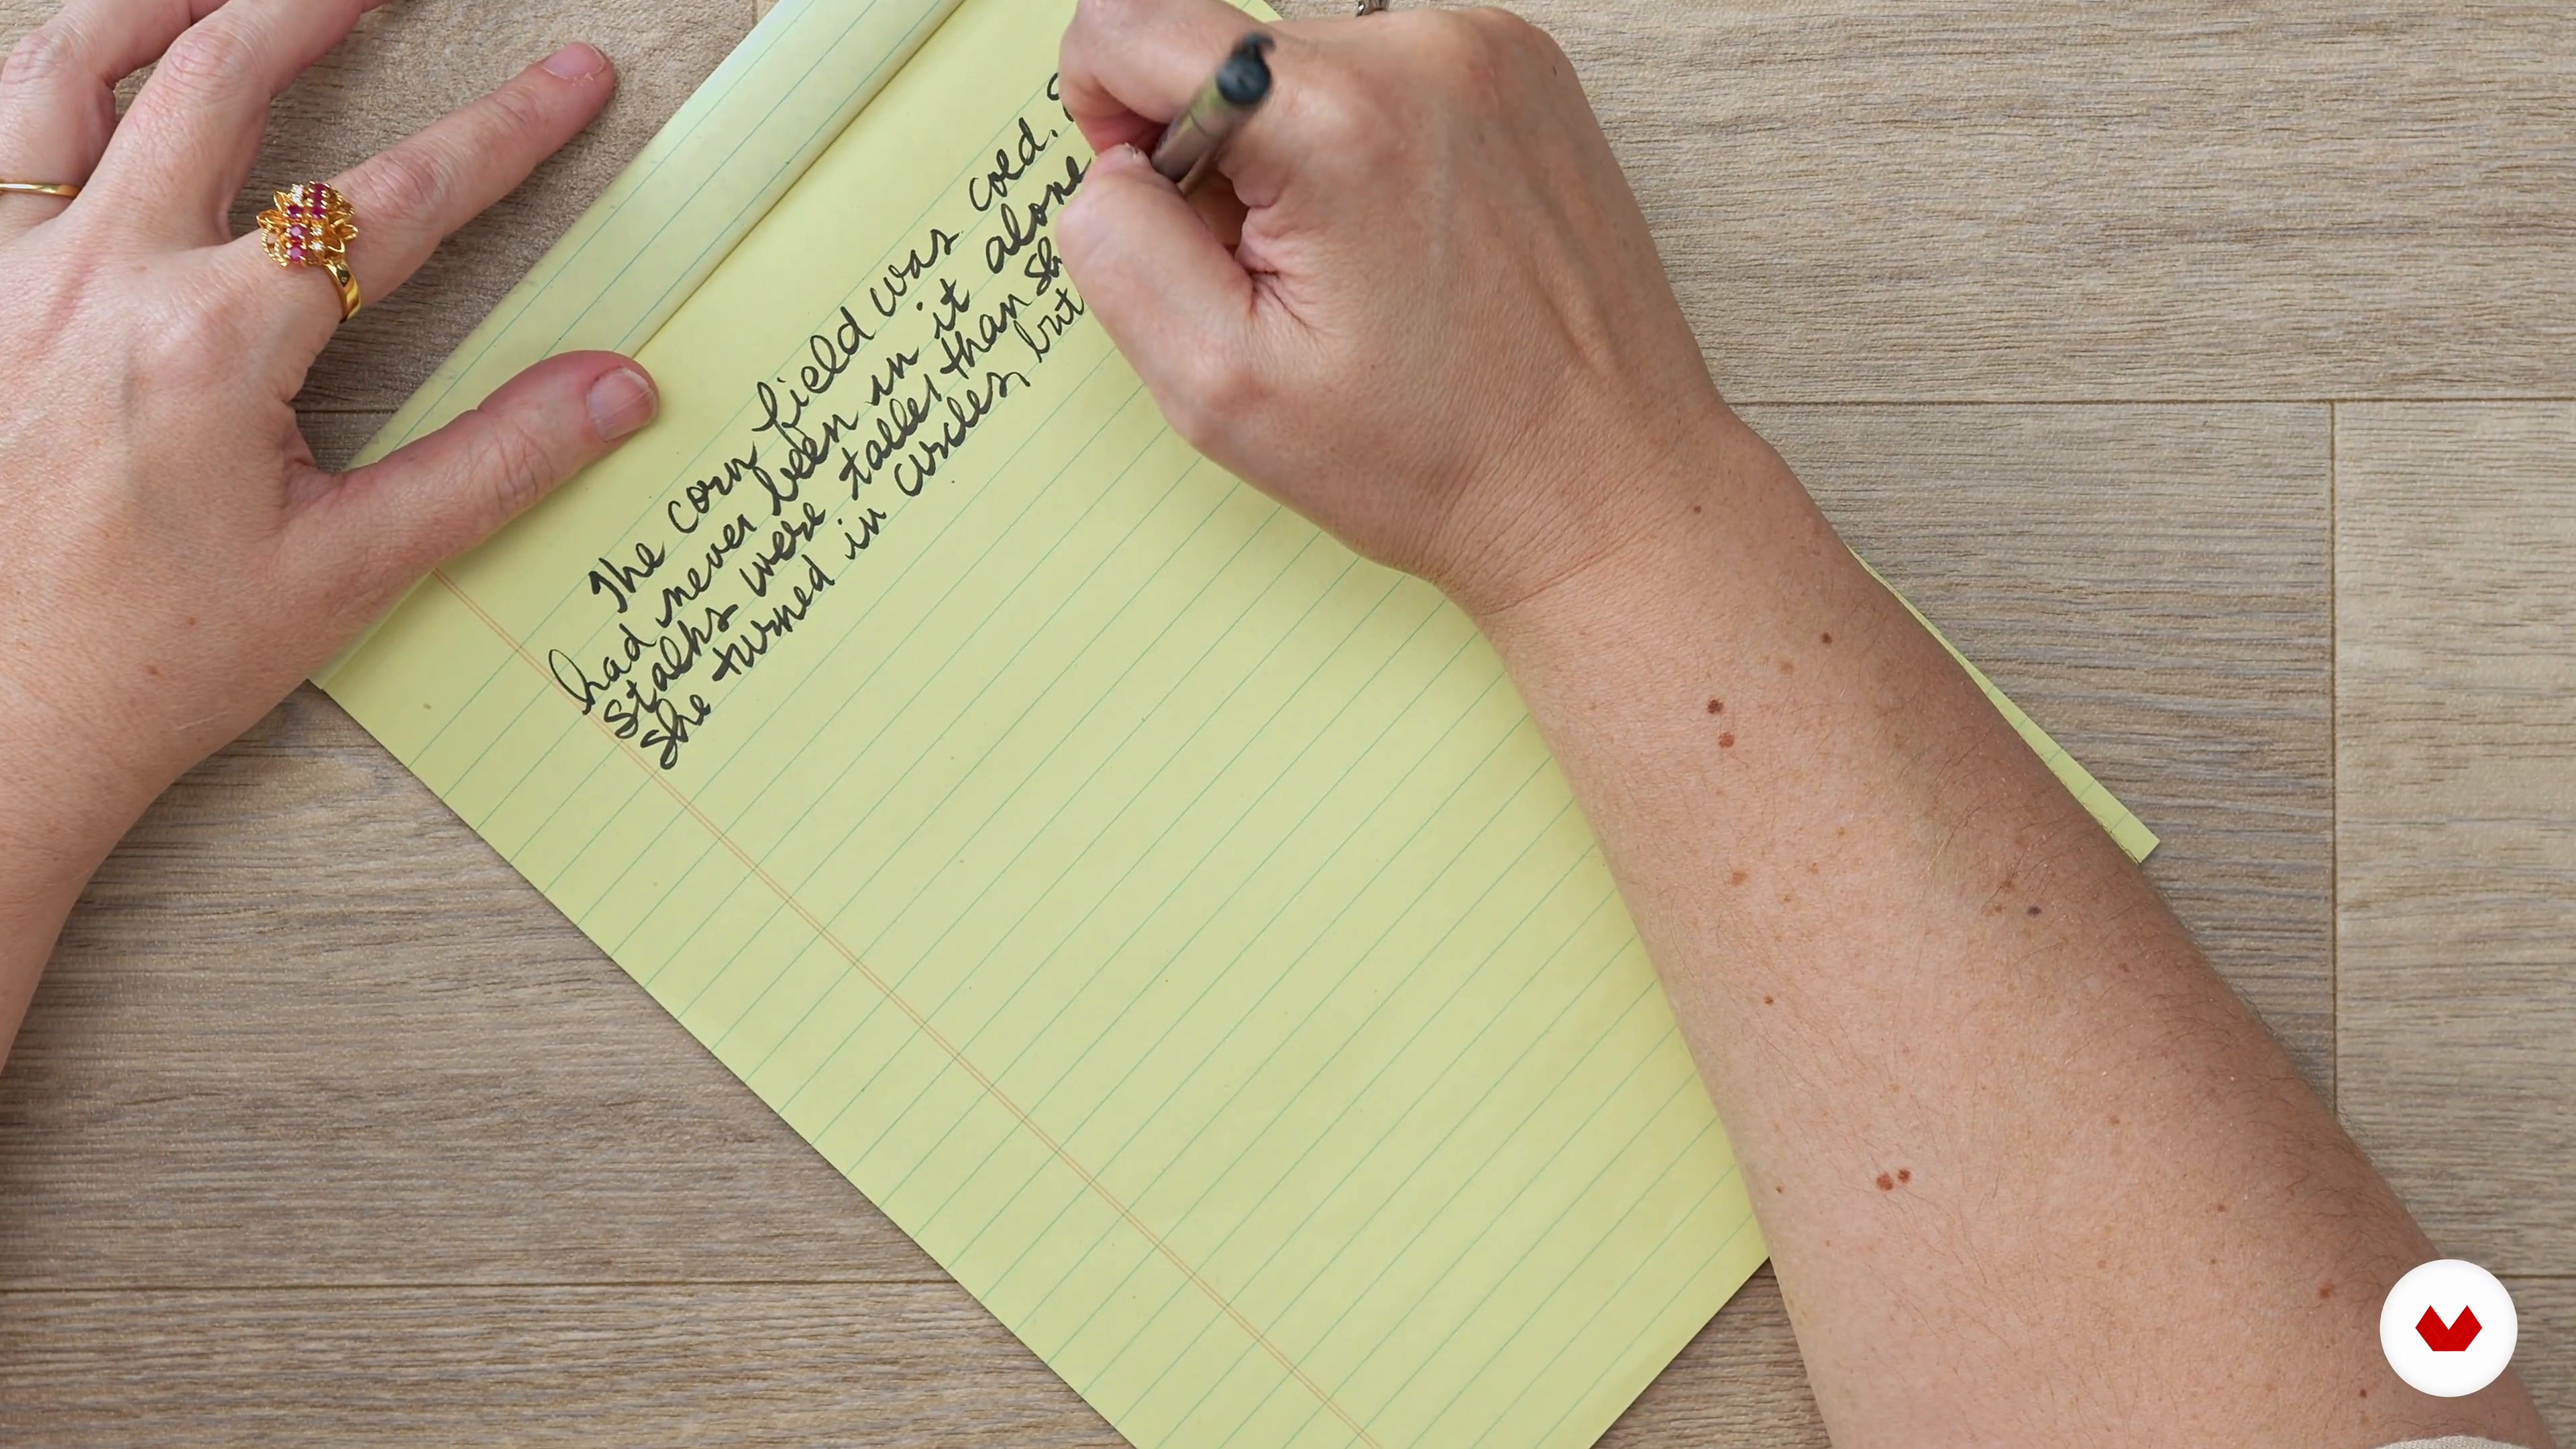 The corn field was cold.
had never been in it alone
stalks were taller than
she turned in circles, but